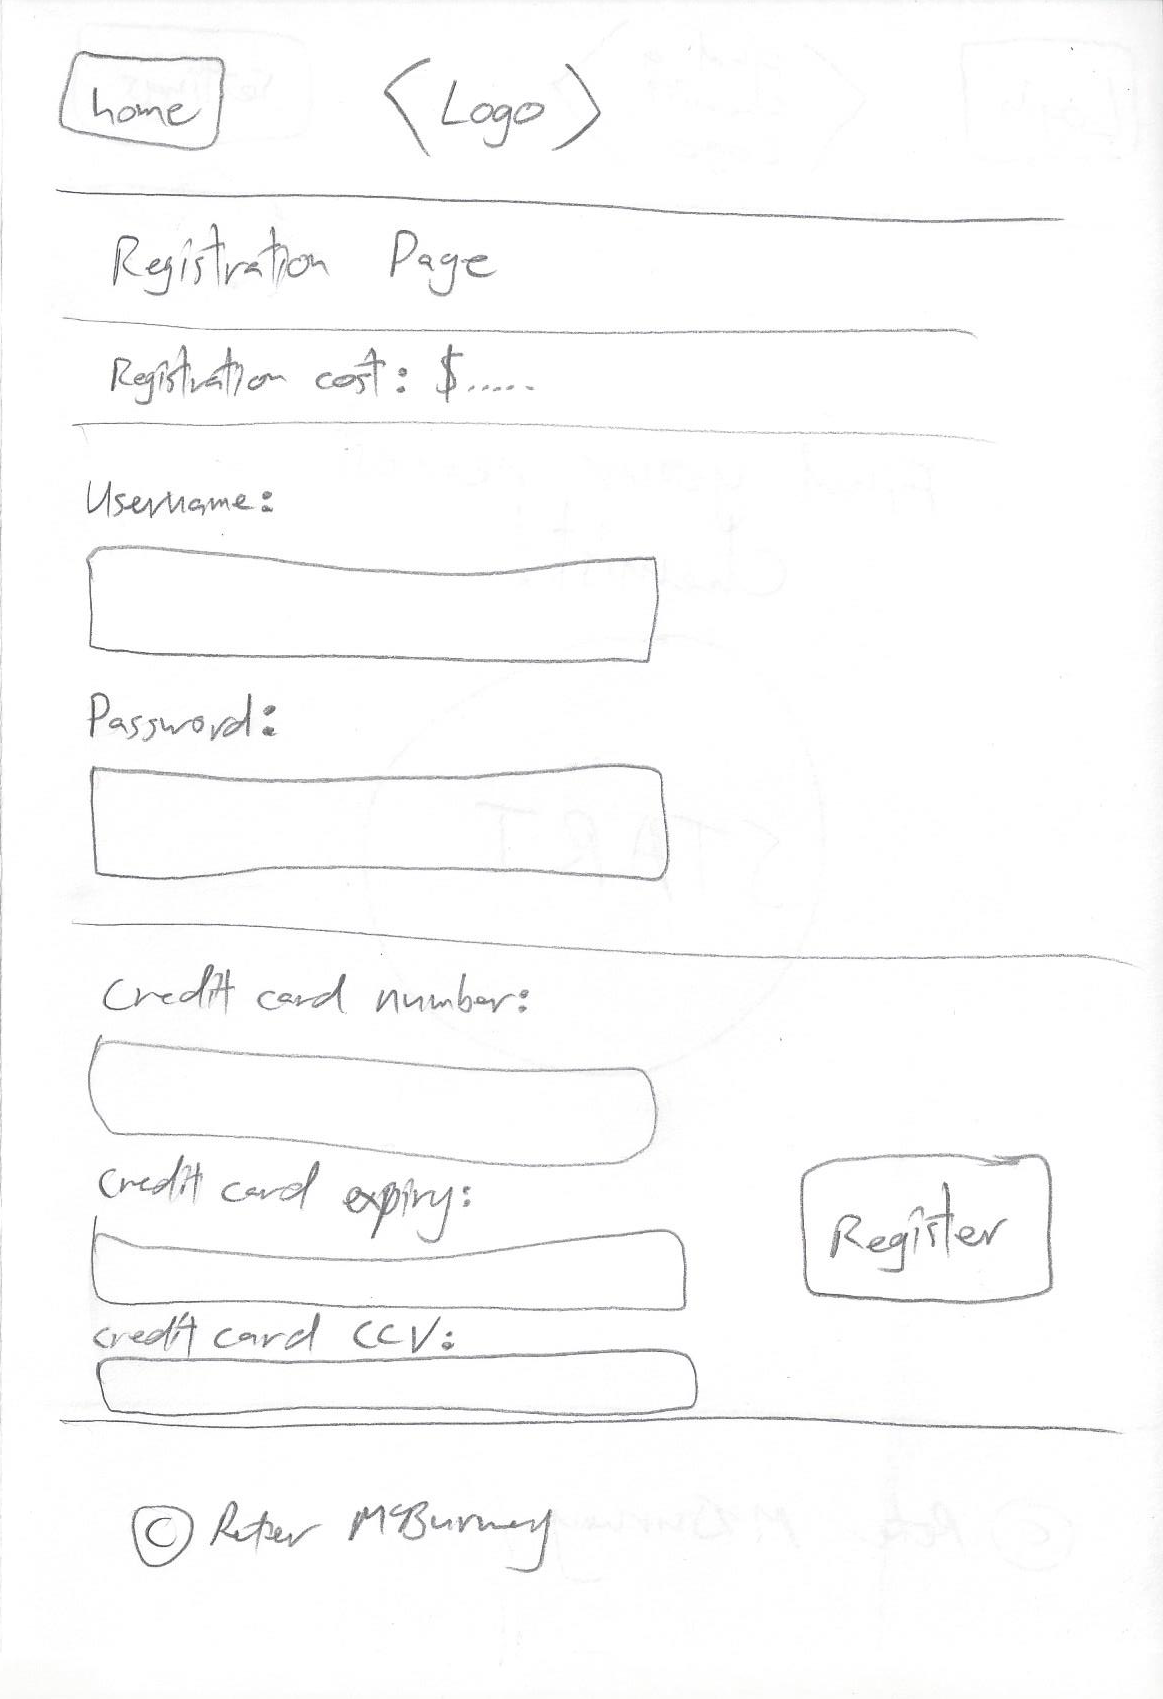 home <Logo>
Registration Page
Registration cost: $.....
Username:
Password:
Credit card number:
Credit card expiry:
Register
credit card CCV:
© Peter McBurney